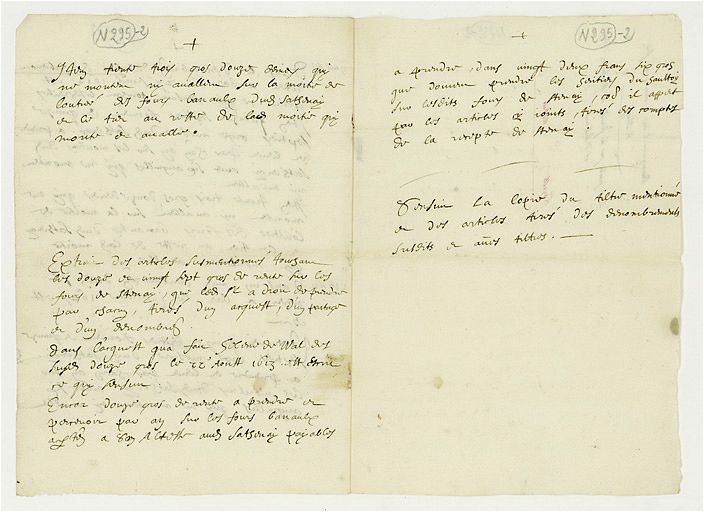 N 295-2
+
Item trente trois gros douze deniers qui
ne montent ny avallent sur la moitié de
l'outre des fours banaulx dud Sathenay
et le tier au reste de lad moitié qui
monte et avalle.
Extrai des articles susmentionnes touchant
les douze et vingt sept gros de rente sur les
fours de Stenay, que led Sr a droit de prendre
par chacun, tires d'un acquest, d'un partage
et d'un denombre
Dans l'acquest qu'a fait de Wal des
susd douze gros le 22 Aoust 1613 est escrit
ce qui sensuit
Encor douze gros de rente a prendre et
percevoir par an sur les fours banaulx
a Son Altesse aud Sathenay payables
N 295-2
+
a prendre, dans vingt deux frans six gros
que doivent prendre les heritiers du
sur lesdits fours de Stenay, il appert
par les articles cy joints, tires des comptes
de la recepte de Stenay.
Sensuit la copie du tiltre mentionné
et des articles tires des denombrements
susdits et aues tiltres.